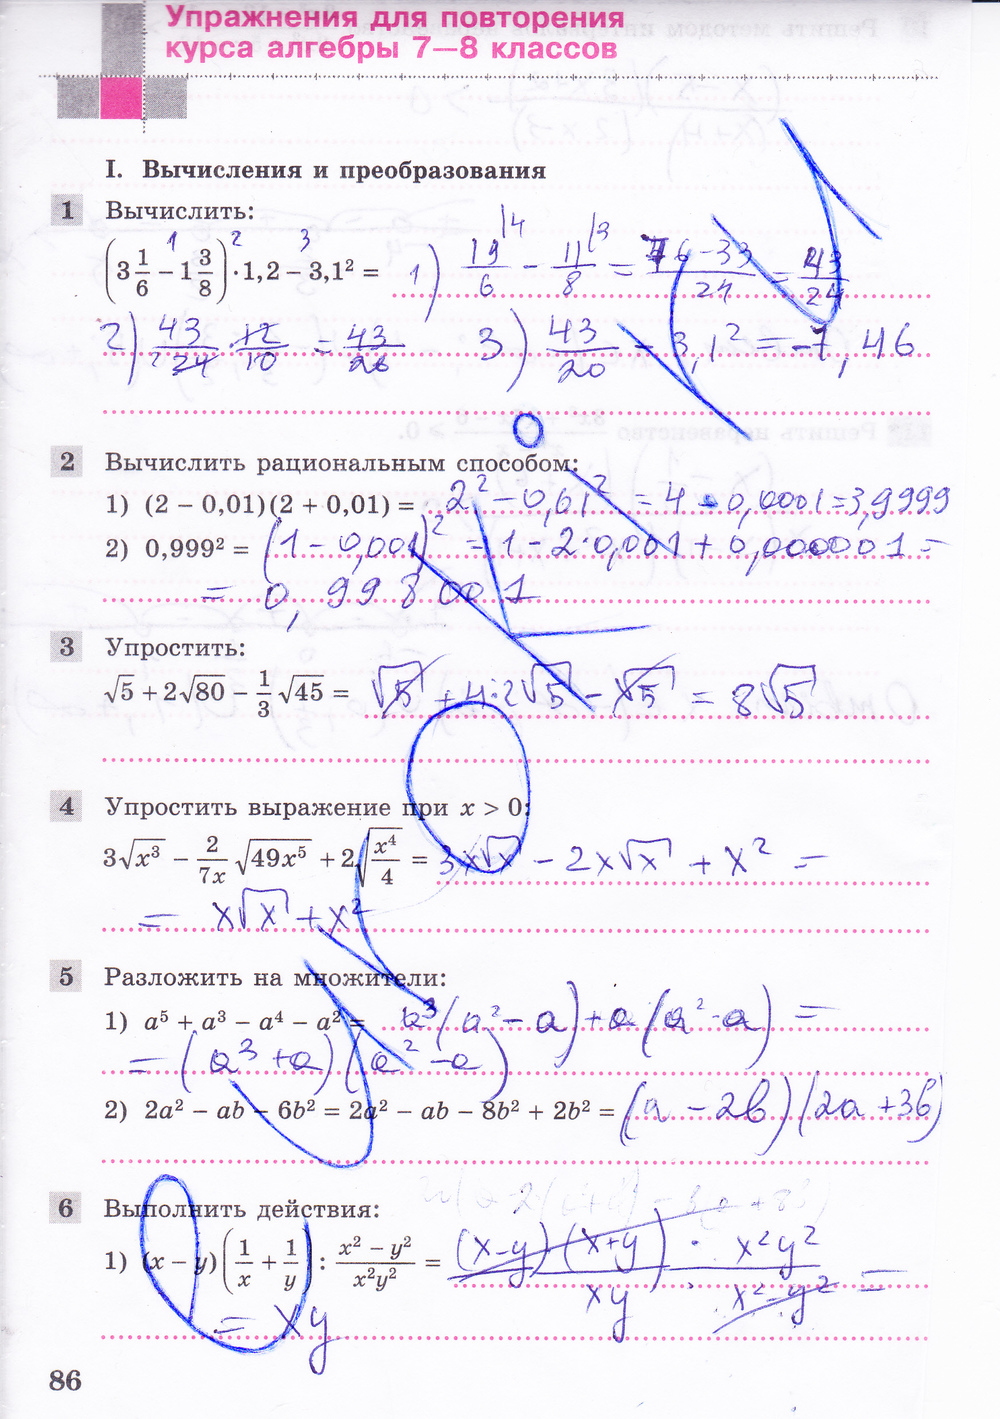 Упражнения для повторения
курса алгебры 7—8 классов
I. Вычисления и преобразования
1 Вычислить:
(3 1/6 − 1 3/8) · 1,2 − 3,1² = 1) 19/6 − 11/8 = (76−33)/24 = 43/24
2) 43/24 · 12/10 = 43/20 3) 43/20 − 3,1² = −7,46
2 Вычислить рациональным способом:
1) (2 − 0,01)(2 + 0,01) = 2² − 0,01² = 4 − 0,0001 = 3,9999
2) 0,999² = (1 − 0,001)² = 1 − 2·0,001 + 0,000001 =
= 0,998001
3 Упростить:
√5 + 2√80 − 1/3 √45 = √5 + 4·2√5 − √5 = 8√5
4 Упростить выражение при x > 0:
3√x³ − 2/(7x) √(49x⁵) + 2√(x⁴/4) = 3x√x − 2x√x + x² =
= x√x + x²
5 Разложить на множители:
1) a⁵ + a³ − a⁴ − a² = a³(a² − a) + a(a² − a) =
= (a³ + a)(a² − a)
2) 2a² − ab − 6b² = 2a² − ab − 8b² + 2b² = (a − 2b)(2a + 3b)
6 Выполнить действия:
1) (x − y)(1/x + 1/y) : (x² − y²)/(x²y²) = (x−y)(x+y)/(xy) · x²y²/(x²−y²) =
= xy
86